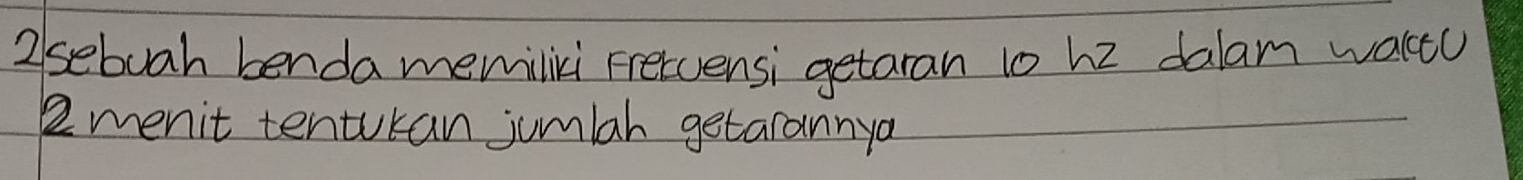 2 sebuah benda memiliki Frekuensi getaran 10 hz dalam waktu
2 menit tentukan jumlah getarannya